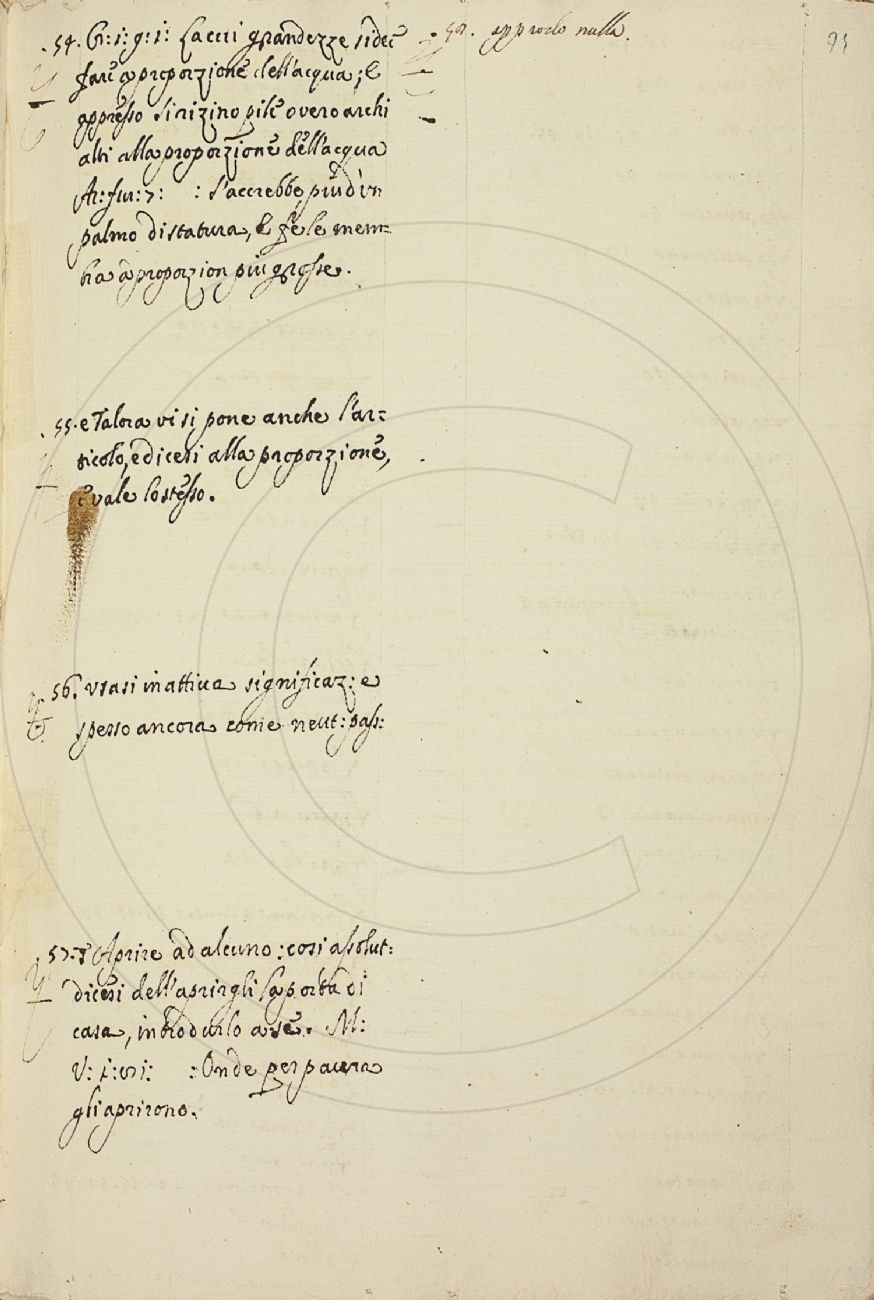 54. Cr: i: g: i: La cui grandezze si dee
fare a proporzione dell'acqua; e
appresso si rizino pile overo archi
alti alla proporzione dell'acqua
Ar: fur: 7: : s'accrebbe più d'un
palmo di statura, e fè le mem=
bra a proporzion più grosse.
55. e Talora vi si pone anche l'ar=
ticolo, e dicesi alla proporzione,
e vale lo stesso.
56. Usasi in attiua significaz: e
spesso ancora come neut: pass:
57. Aprire ad alcuno: cosi assolut:
dicesi dell'aprirgli la porta di
casa, introdurlo a sè. M:
V: : Onde per paura
gli aprirono.
58. approdo nulla.
95